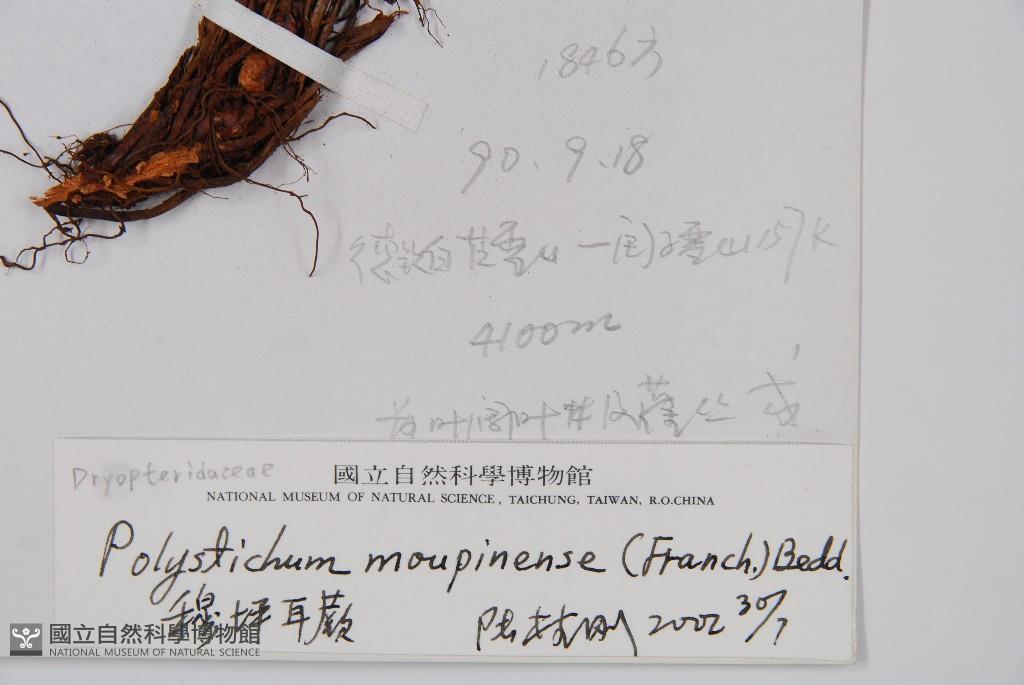 18467
90.9.18
德欽白芒雪山 一 雪山 157K
4100m
Dryopteridaceae
國立自然科學博物館
NATIONAL MUSEUM OF NATURAL SCIENCE, TAICHUNG, TAIWAN, R.O.CHINA
Polystichum moupinense (Franch.) Bedd.
穆坪耳蕨 2002 30/7
國立自然科學博物館
NATIONAL MUSEUM OF NATURAL SCIENCE